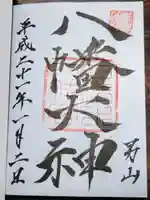 八幡大神
男山
平成二十一年一月二日